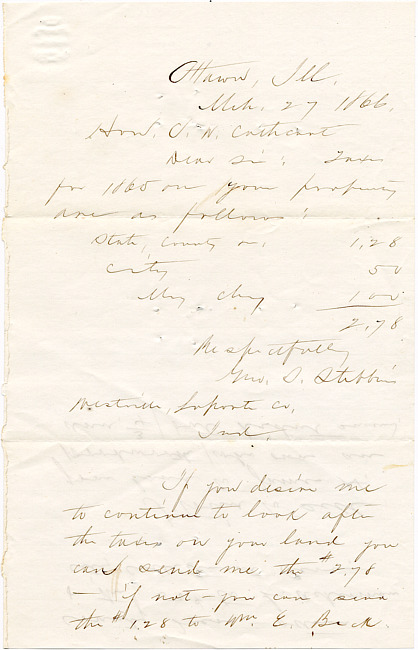 Ottawa, Ill.
Mch. 27 1866.
Hon. C. W. Cathcart
Dear Sir: Taxes
for 1865 on your property
are as follows:
State, County &c. 1,28
City 50
My chg 1 00
2,78
Respectfully
Geo. S. Stebbins
Westville, Laporte Co,
Ind.
If you desire me
to continue to look after
the taxes on your land you
can send me the $2.78
— if not - you can send
the $1,28 to Wm. E. Beck.